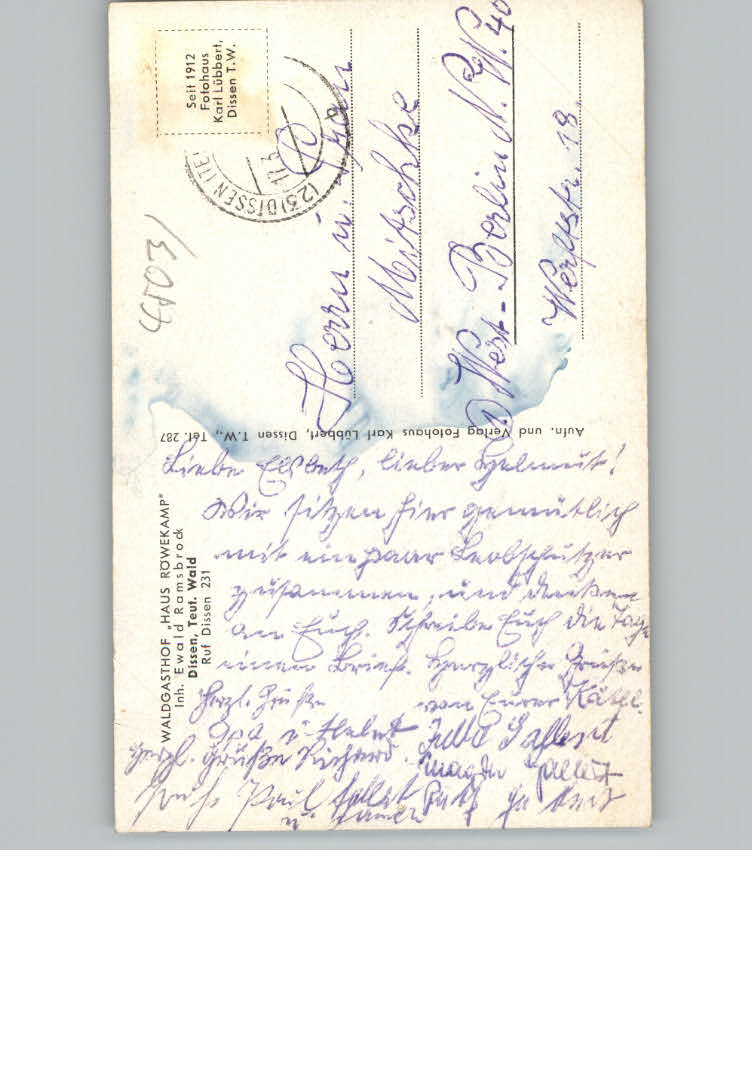 Seit 1912
Fotohaus
Karl Lübbert,
Dissen T.W.
(23) DISSEN (TE
Herrn u. Frau
Mitschke
West-Berlin N.W. 40
Werftstr. 18.
Aufn. und Verlag Fotohaus Karl Lübbert, Dissen T.W., Tel. 287
WALDGASTHOF „HAUS RÖWEKAMP"
Inh. Ewald Ramsbrock
Dissen, Teut. Wald
Ruf Dissen 231
Liebe Elsbeth, lieber Helmut!
Wir sitzen hier gemütlich
mit ein paar Leobschützer
zusammen, und denken
an Euch. Schreibe Euch die Tage
einen Brief. Herzliche Grüße
von Eurer
Herzl. Grüße
Opa u.
Herzl. Grüße Richard.
Paul